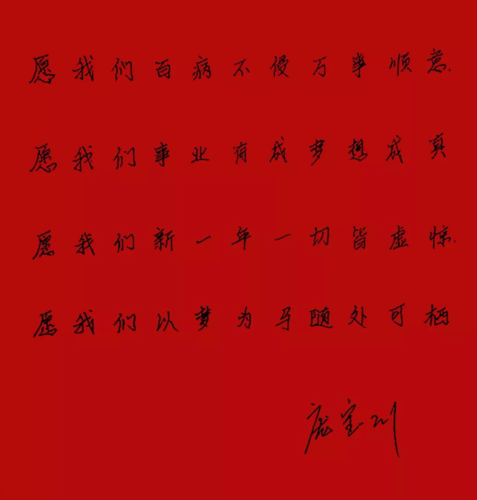 愿我们百病不侵万事顺意.
愿我们事业有成梦想成真
愿我们新一年一切皆虚惊.
愿我们以梦为马随处可栖
庞宝川